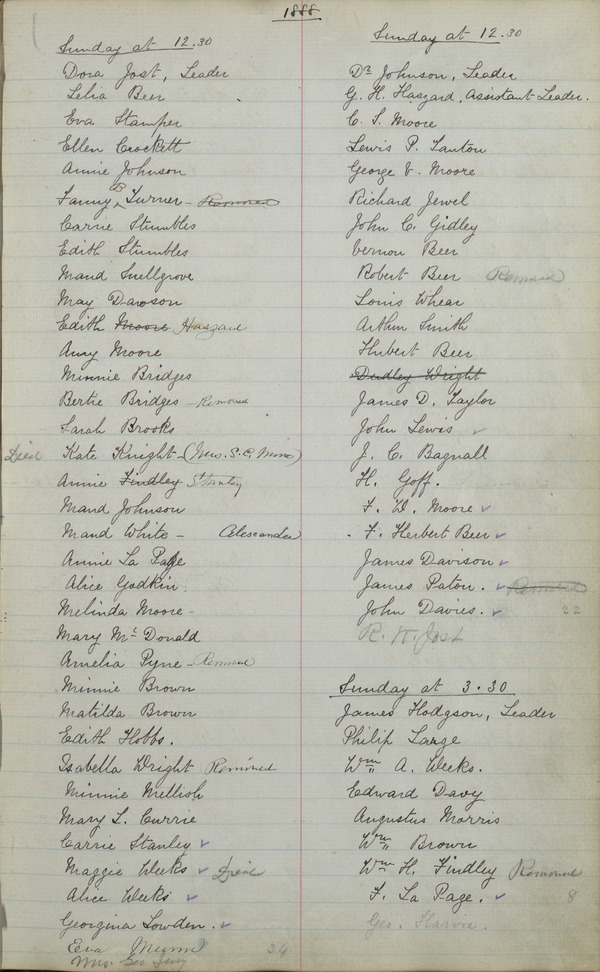 1888
Sunday at 12.30
Dora Jost, Leader
Lelia Beer
Eva Stamper
Ellen Crockett
Annie Johnson
Fanny B Turner - Removed
Carrie Stumbles
Edith Stumbles
Maud Snellgrove
May Dawson
Edith Moore Haszard
Amy Moore
Minnie Bridges
Bertie Bridges - Removed
Sarah Brooks
Died Kate Knight - (Mrs. S.C.
Annie Findley Stanley
Maud Johnson
Maud White - Alexander
Annie La Page
Alice Godkin
Melinda Moore -
Mary Mc Donald
Amelia Pyne - Removed
Minnie Brown
Matilda Brown
Edith Hobbs.
Isabella Wright Removed
Minnie Mellish
Mary L. Currie
Carrie Stanley ✓
Maggie Weeks ✓ Died
Alice Weeks ✓
Georgina Lowden. ✓
Eva Munn 34
Mrs. Geo
Sunday at 12.30
Dr Johnson, Leader
G. H. Haszard, Assistant Leader.
C. S. Moore
Lewis P. Tanton
George V. Moore
Richard Jewel
John C. Gidley
Vernon Beer
Robert Beer Removed
Louis Whear
Arthur Smith
Hubert Beer
Dudley Wright
James D. Taylor
John Lewis ✓
J. C. Bagnall
H. Goff.
F. W. Moore ✓
F. Herbert Beer ✓
James Davison ✓
James Paton. ✓ Removed
John Davies. ✓ 22
R. H. Jost
Sunday at 3.30
James Hodgson, Leader
Philip Large
Wm A. Weeks.
Edward Davy
Augustus Morris
Wm Brown
Wm H. Findley Removed
F. La Page. ✓ 8
Geo. Harvie.